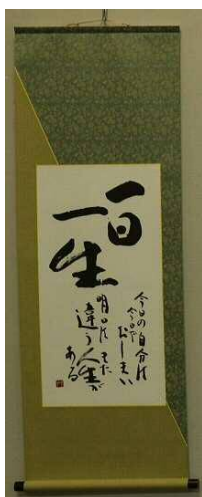 一日
一生
今日の自分は
今日で
おしまい
明日はまた
違う人生が
ある